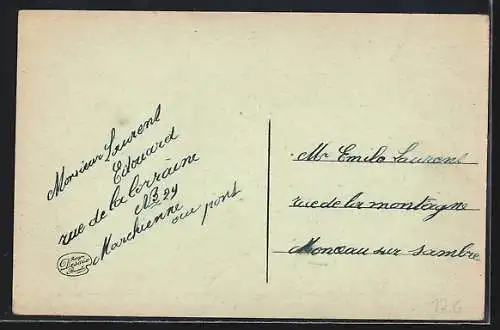 Monsieur Laurent
Edouard
rue de la lorraine
N 29
Marchienne
au pont
Mr Emile Laurent
rue de la montagne
Monceau sur Sambre